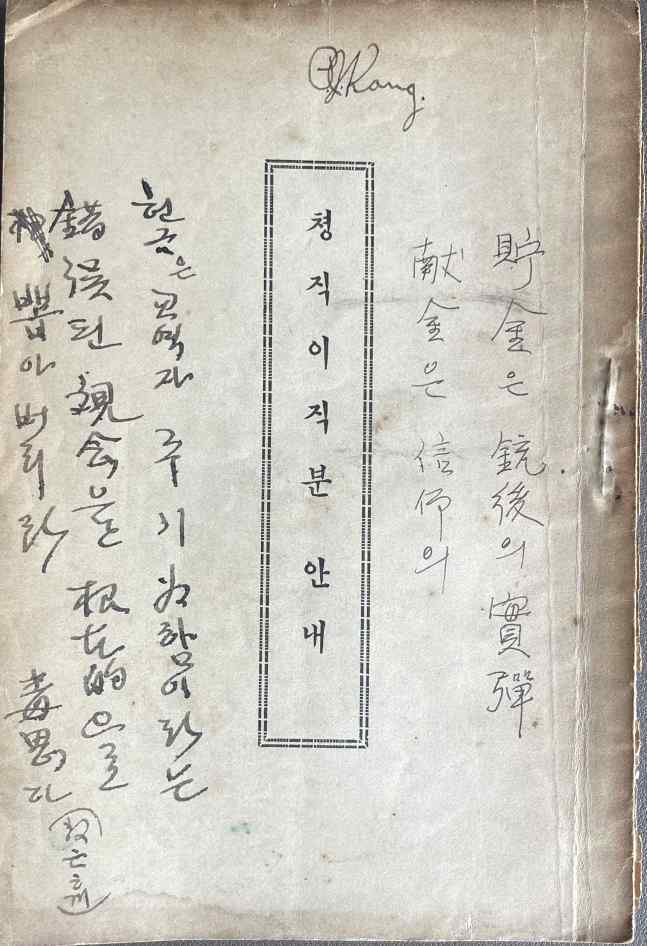 P.J. Kang.
貯金은 銃後의 實彈
献金은 信仰의
청직이직분 안내
헌금은 교역자 주기 爲함이라는
錯誤된 觀念을 根本的으로
뽑아 버리라 毒思다